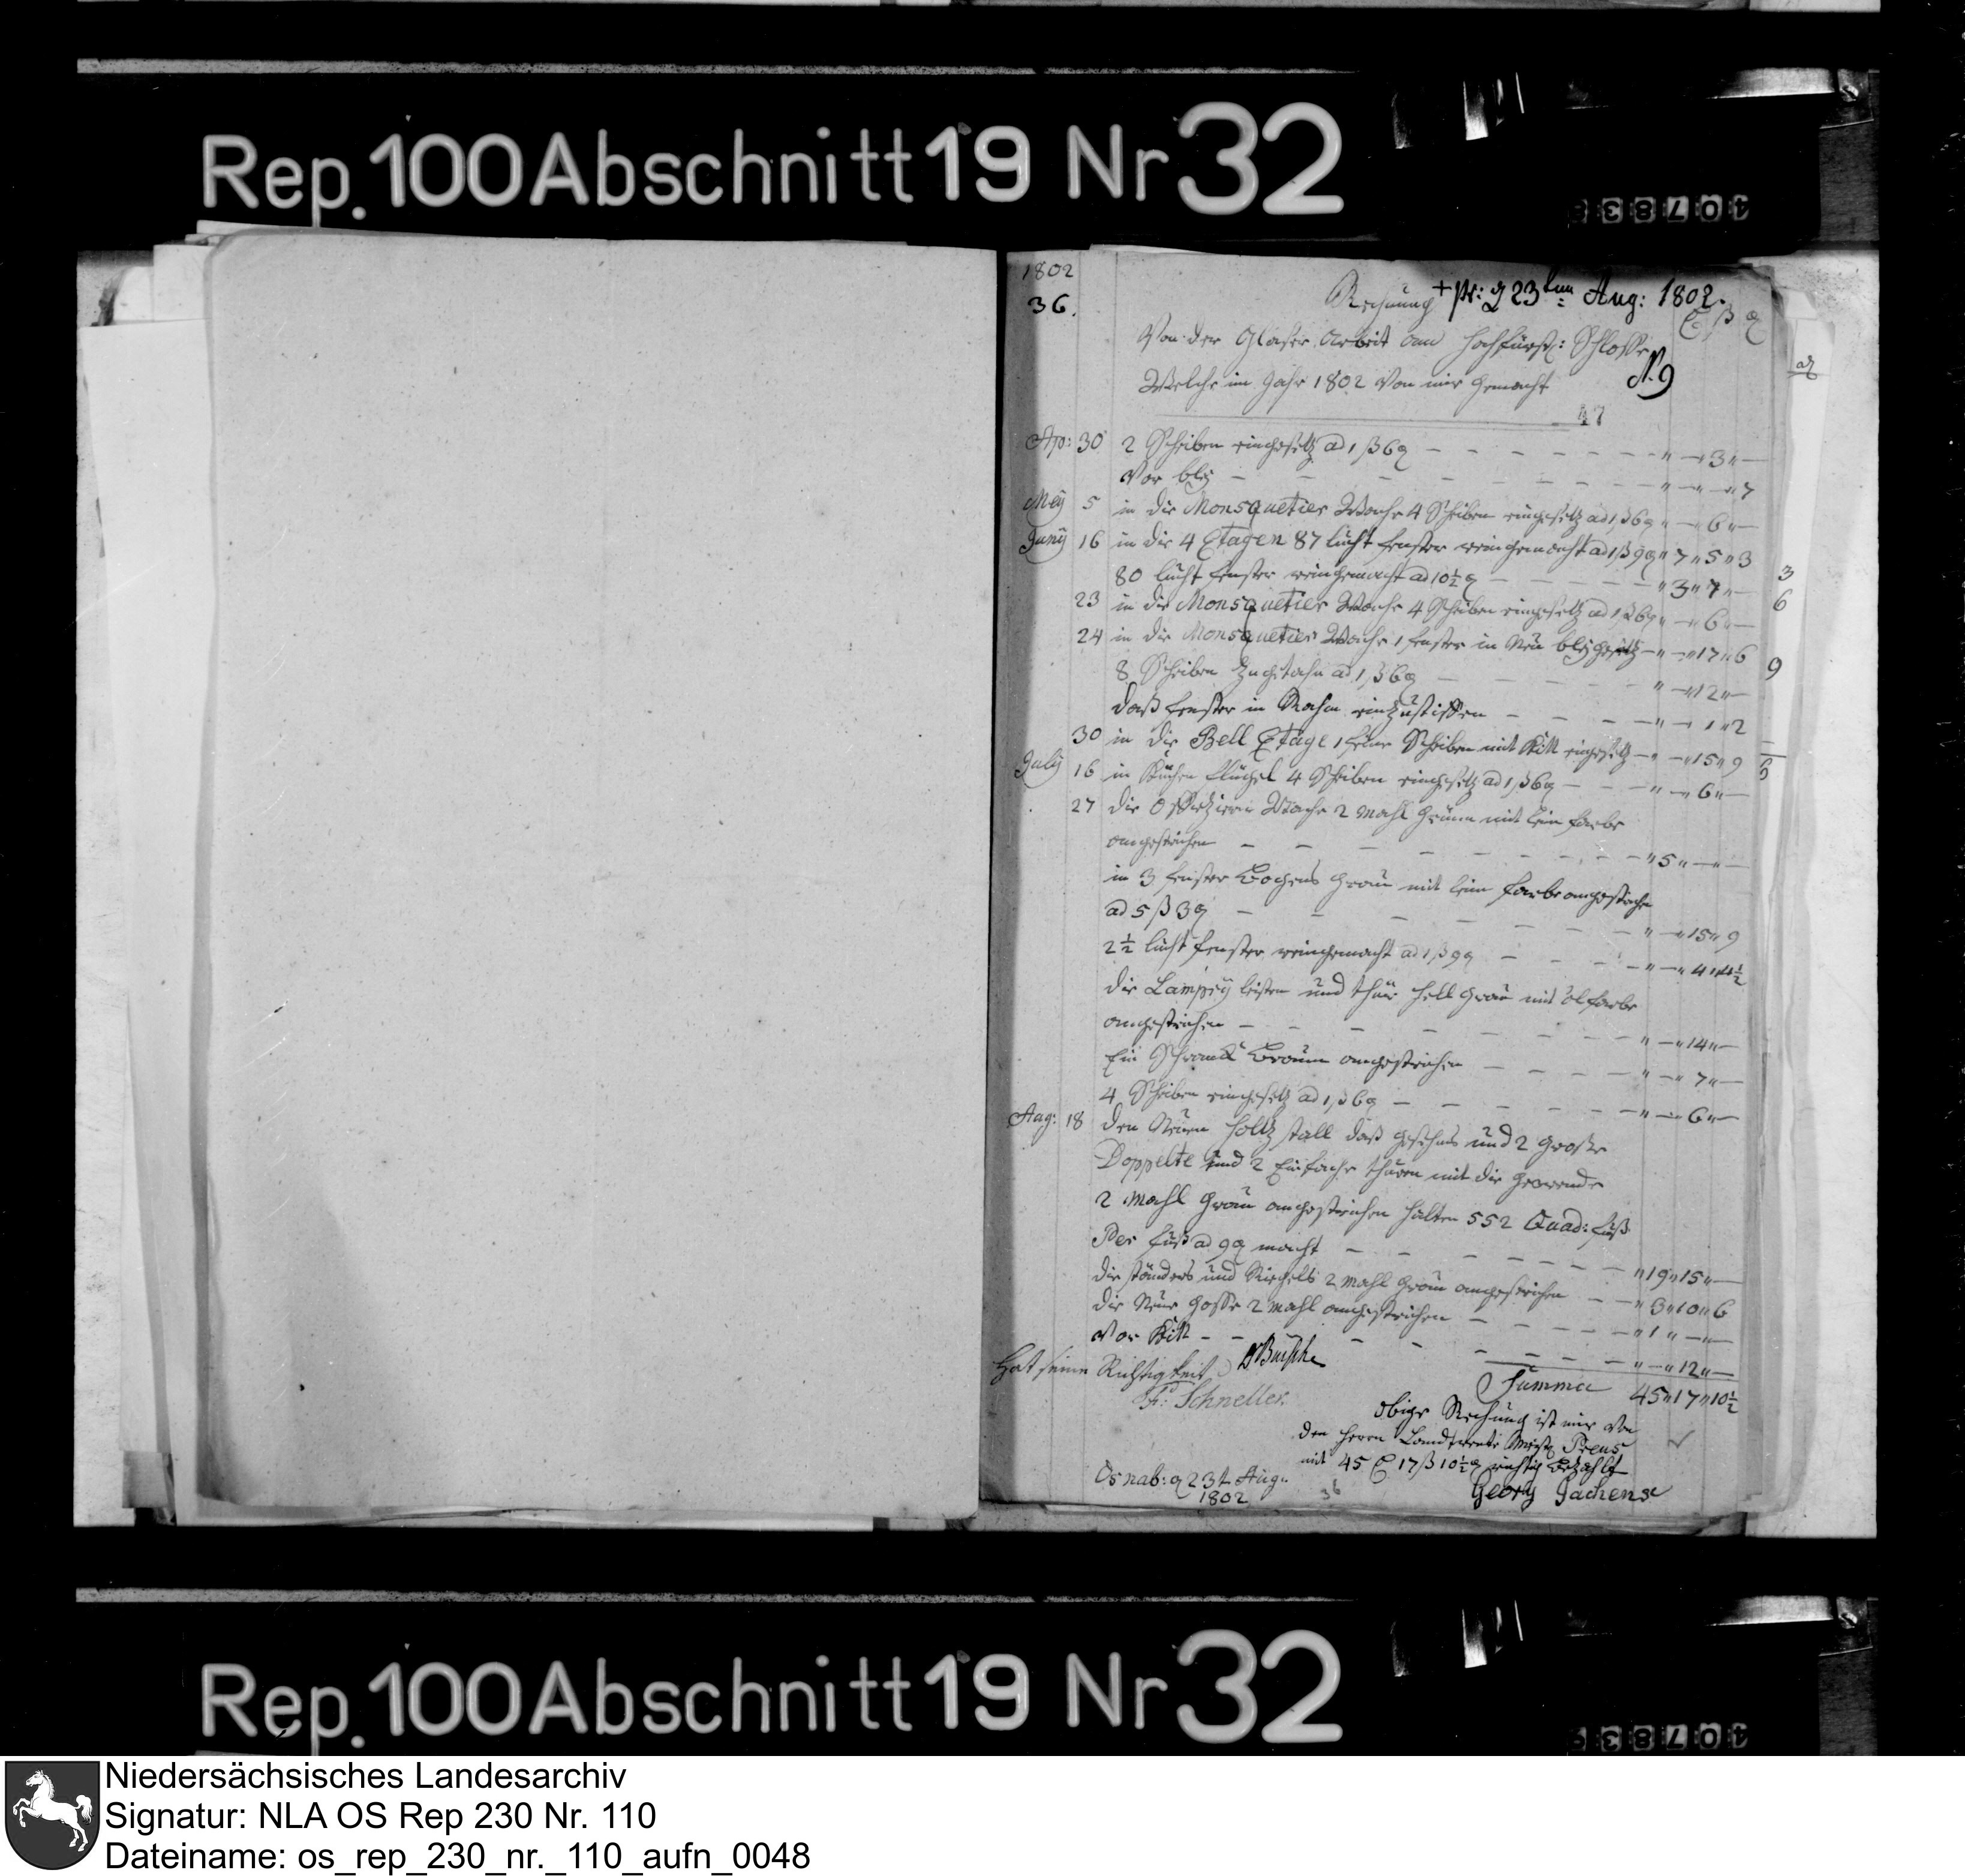 Rep. 100 Abschnitt 19 Nr 32
1802
36.
Rechnung + pr: d 23ten Aug: 1802.
Von der Glaser Arbeit am Hochfürstl: Schlosse
Welche im Jahr 1802 Von mir gemacht
N. 9
47
Ap: 30 2 Scheiben eingesetz ad 1 ß 6 ₰ — " — " 3 " —
Vor bley — " — " — " 7
Mey 5 in die Monsquetier Wache 4 Scheiben eingesetz ad 1 ß 6 ₰ " — " 6 " —
Juny 16 in die 4 Etagen 87 lucht fenster reingemacht ad 1 ß 9 ₰ " 7 " 5 " 3
80 lucht fenster reingemacht ad 10½ ₰ — " 3 " 7 " —
23 in die Monsquetier Wache 4 Scheiben eingesetz ad 1 ß 6 ₰ " — " 6 " —
24 in die Monsquetier Wache 1 fenster in Neu bley gesetz — " — " 17 " 6
8 Scheiben zugetahn ad 1 ß 6 ₰ — " — " 12 " —
daß fenster in Rahm — " — " 1 " 2
30 in die Bell Etage 1 feine Scheiben mit Kitt eingesetz — " — " 15 " 9
July 16 in Küchen flügel 4 Scheiben eingesetz ad 1 ß 6 ₰ — " — " 6 " —
27 die Wache 2 mahl mit leim farbe
angestrichen — " 5 " — " —
in 3 fenster Bogens Grau mit leim farbe angestrichen
ad 5 ß 3 ₰ — " — " 15 " 9
2½ lucht fenster reingemacht ad 1 ß 9 ₰ — " — " 4 " 4½
die Lampry leisten und thür hell Grau mit öl farbe
angestrichen — " — " 14 " —
Ein Schranck Braun angestrichen — " — " 7 " —
4 Scheiben eingesetz ad 1 ß 6 ₰ — " — " 6 " —
Aug: 18 den Neuen Holtz stall daß gesehms und 2 Große
Doppelte und 2 Einfache thüren mit die
2 mahl Grau angestrichen halten 552 Quad: fuß
Per fuß ad 9 ₰ macht — " 19 " 15 " —
die ständers und Riegels 2 mahl Grau angestrichen — " 3 " 10 " 6
die Neue Gosse 2 mahl angestrichen — " 1 " — " —
Vor Kitt — " — " 12 " —
Hat seine Richtigkeit Busche
F. Schneller.
Summa 45 " 17 " 10½
Obige Rechnung ist mir Von
den Herrn Landrente Mestr Preus
mit 45 17 ß 10½ ₰ richtig Bezahlt
Osnab: d 23t Aug.
1802
36
Georg Jachens
Rep. 100 Abschnitt 19 Nr 32
Niedersächsisches Landesarchiv
Signatur: NLA OS Rep 230 Nr. 110
Dateiname: os_rep_230_nr._110_aufn_0048